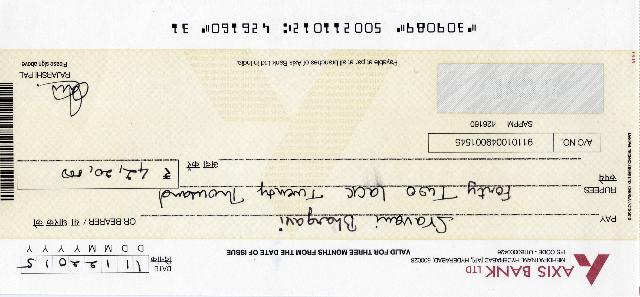 AXIS BANK LTD
MEHDIPATNAM, HYDERABAD [AP], HYDERABAD, 500028
IFS CODE - UTIB0000426
VALID FOR THREE MONTHS FROM THE DATE OF ISSUE
DATE 1 1 1 2 2 0 1 5
दिनांक D D M M Y Y Y Y
PAY Sravani Bhargavi OR BEARER / या धारक को
RUPEES Forty Two lack Twenty Thousand
रुपये अदा करें ₹ 42,20,000
A/C NO. 911010049001545
SAPPM 426160
Payable at par at all branches of Axis Bank Ltd in India.
RAJARSHI PAL
Please sign above
⑈309089⑈ 500211012⑆ 426160⑈ 31